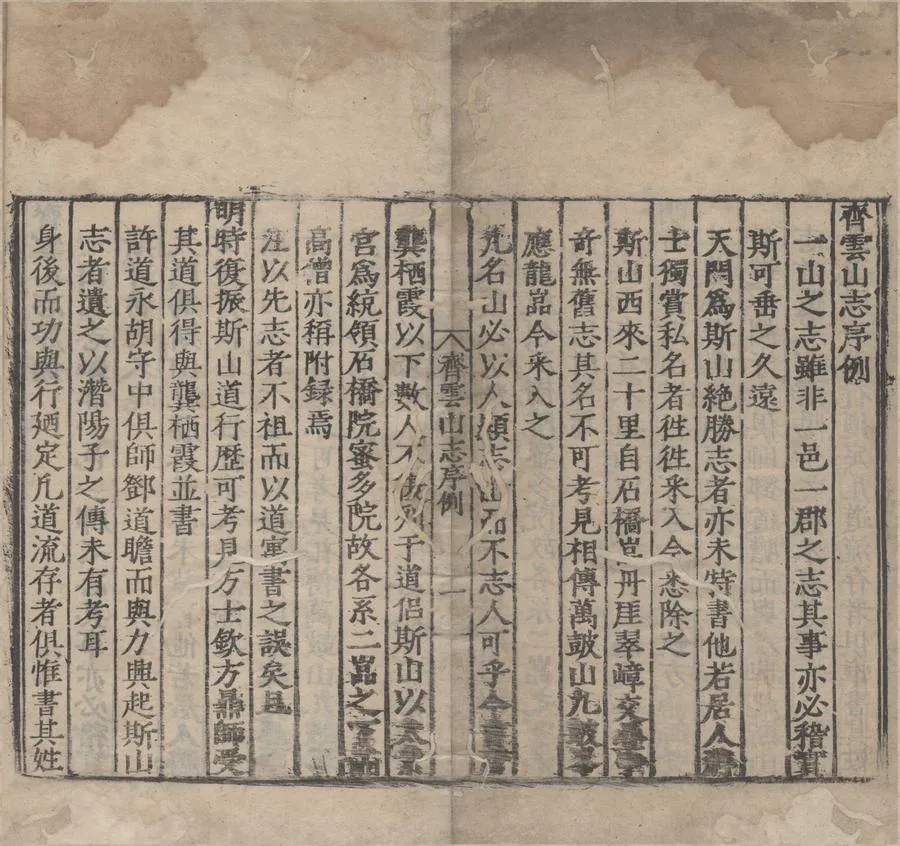 齊雲山志序例
一山之志雖非一邑一郡之志其事亦必稽實
斯可垂之久遠
天門爲斯山絶勝志者亦未特書他若居人
士獨賞私名者徃徃采入今悉除之
斯山西來二十里自石橋岩丹厓翠嶂交疊
奇無舊志其名不可考見相傳萬鼓山九
應龍嵓今采入之
凢名山必以人顯志山而不志人可乎今
龔栖霞以下數人不列于道侶斯山以太素
宮爲統領石橋院蜜多院故各系二嵓之
高僧亦稱附録焉
以先志者不祖而以道軍書之誤矣且
明時復振斯山道行歴可考見方士欽方鼎師受
其道俱得與龔栖霞並書
許道永胡守中俱師鄧道瞻而與力興起斯山
志者遺之以潛陽子之傳未有考耳
身後而功與行廼定凢道流存者俱惟書其姓
齊雲山志序例
一